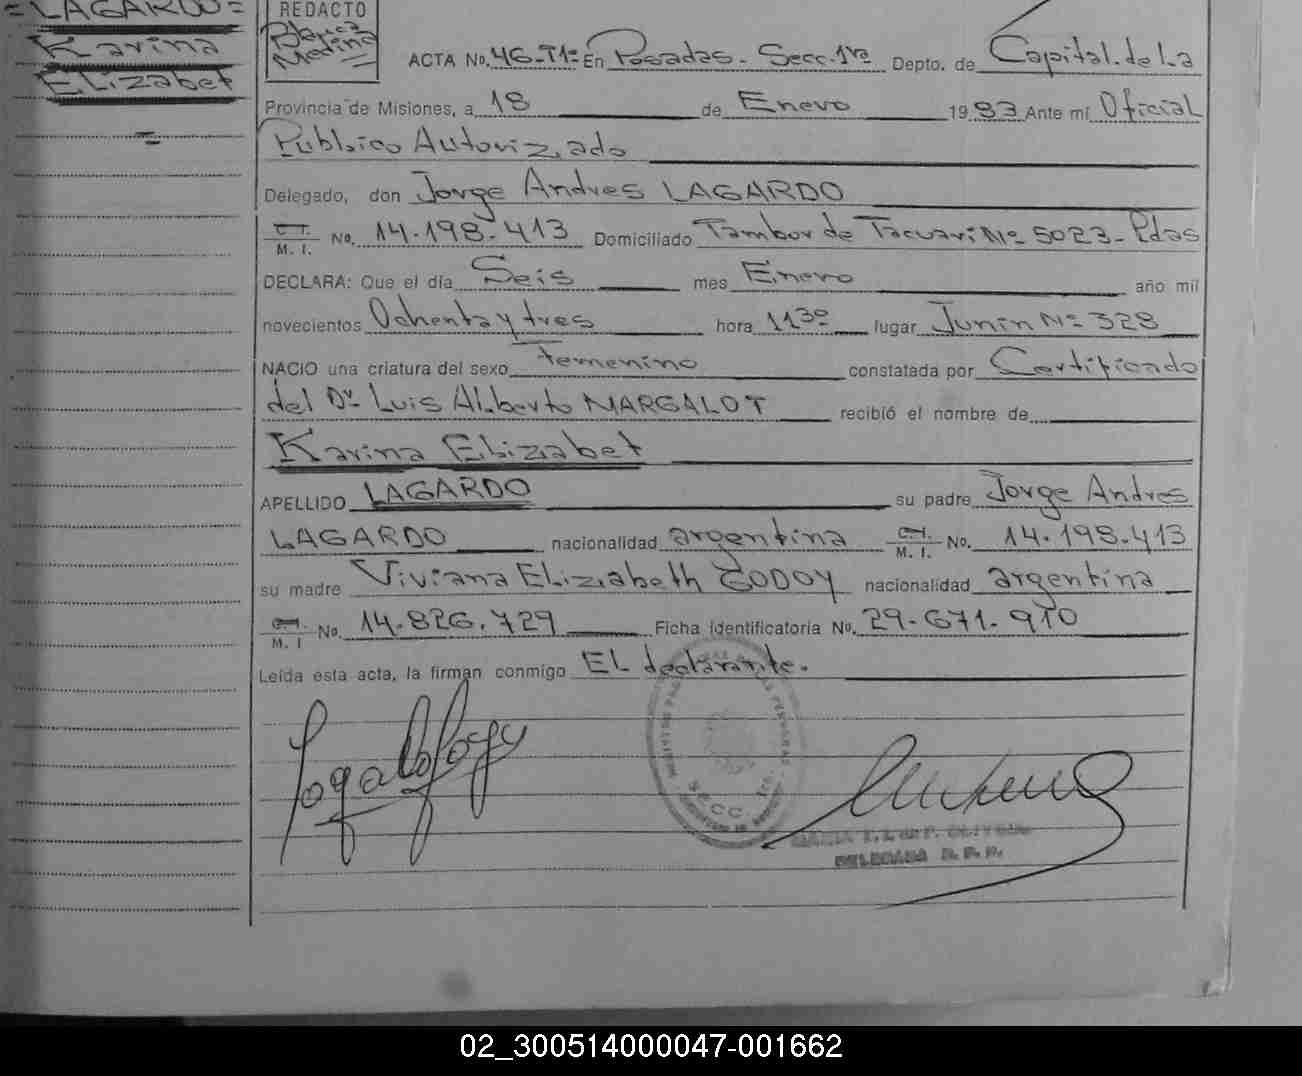 = LAGARDO =
Karina
Elizabet
=
REDACTO
Blanca
Medina
ACTA No. 46-T1= En Posadas - Secc. 1ra Depto. de Capital de La
Provincia de Misiones, a 18 de Enero 1983 Ante mí Oficial
Público Autorizado
Delegado, don Jorge Andres LAGARDO
C. I.
M. I. No. 14.198.413 Domiciliado Tambor de Tacuari Nº 5023 - Pdas
DECLARA: Que el día Seis mes Enero año mil
novecientos Ochenta y tres hora 1130 lugar Junin Nº 328
NACIO una criatura del sexo Femenino constatada por Certificado
del Dr Luis Alberto MARGALOT recibió el nombre de
Karina Elizabet
APELLIDO LAGARDO su padre Jorge Andres
LAGARDO nacionalidad argentina C. I.
M. I. No. 14.198.413
su madre Viviana Elizabeth GODOY nacionalidad argentina
C. I.
M. I No. 14.826.729 Ficha identificatoria No. 29.671.910
Leída esta acta, la firman conmigo El declarante.
SECC.
DELEGADA R. P. P.
02_300514000047-001662